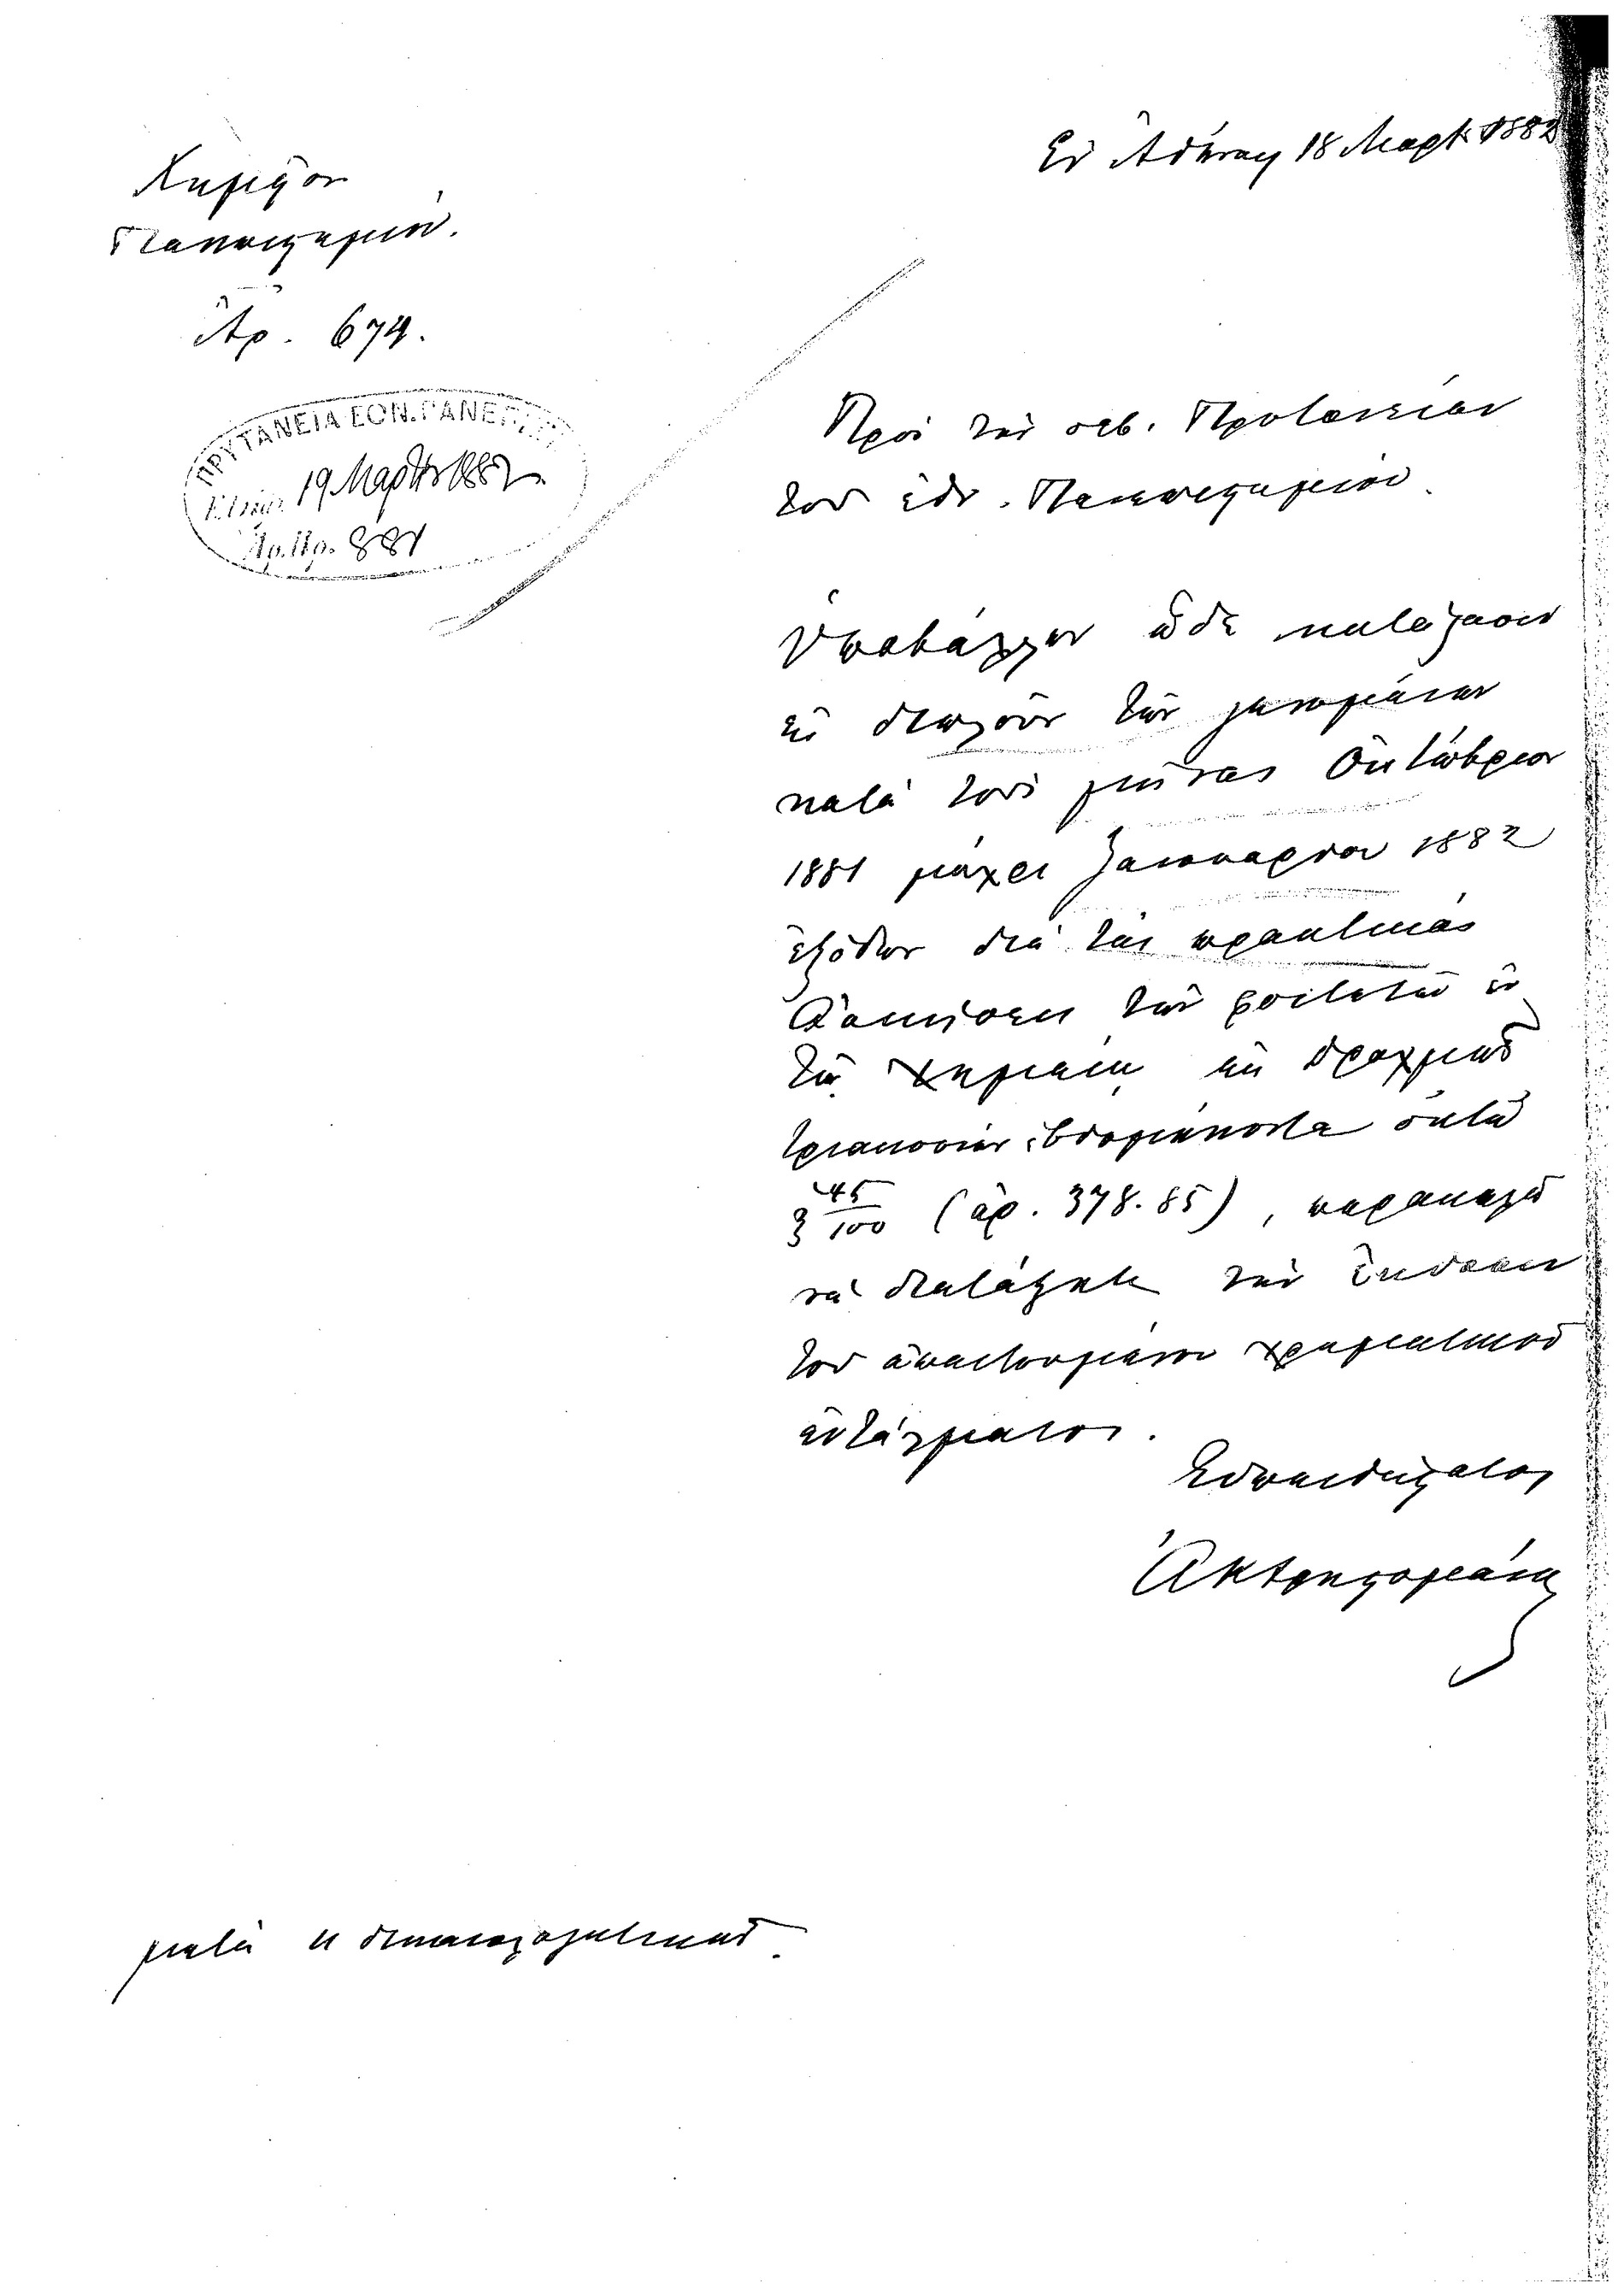 Ἐν Ἀθήναις 18 Μαρτ. 1882
Χημεῖον
Πανεπιστημίου.
Ἀρ. 674.
ΠΡΥΤΑΝΕΙΑ ΕΘΝ. ΠΑΝΕΠΙΣΤ.
Ἐλήφ. 19 Μαρτίου 1882
Ἀρ. Πρ. 881
Πρὸς τὴν σεβ. Πρυτανείαν
τοῦ ἐθν. Πανεπιστημίου.
Ὑποβάλλων ὧδε κατάστασιν
εἰς διπλοῦν τῶν γενομένων
κατὰ τοὺς μῆνας Ὀκτώβριον
1881 μέχρι Ἰανουαρίου 1882
ἐξόδων διὰ τὰς πρακτικὰς
ἀσκήσεις τῶν φοιτητῶν ἐν
τῷ Χημείῳ ἐκ δραχμῶν
τριακοσίων ἑβδομήκοντα ὀκτὼ
καὶ 45/100 (ἀρ. 378.85), παρακαλῶ
νὰ διατάξητε τὴν ἔκδοσιν
τοῦ ἀπαιτουμένου χρηματικοῦ
ἐντάλματος.
Εὐπειθέστατος
μετὰ 11 δικαιολογητικῶν.